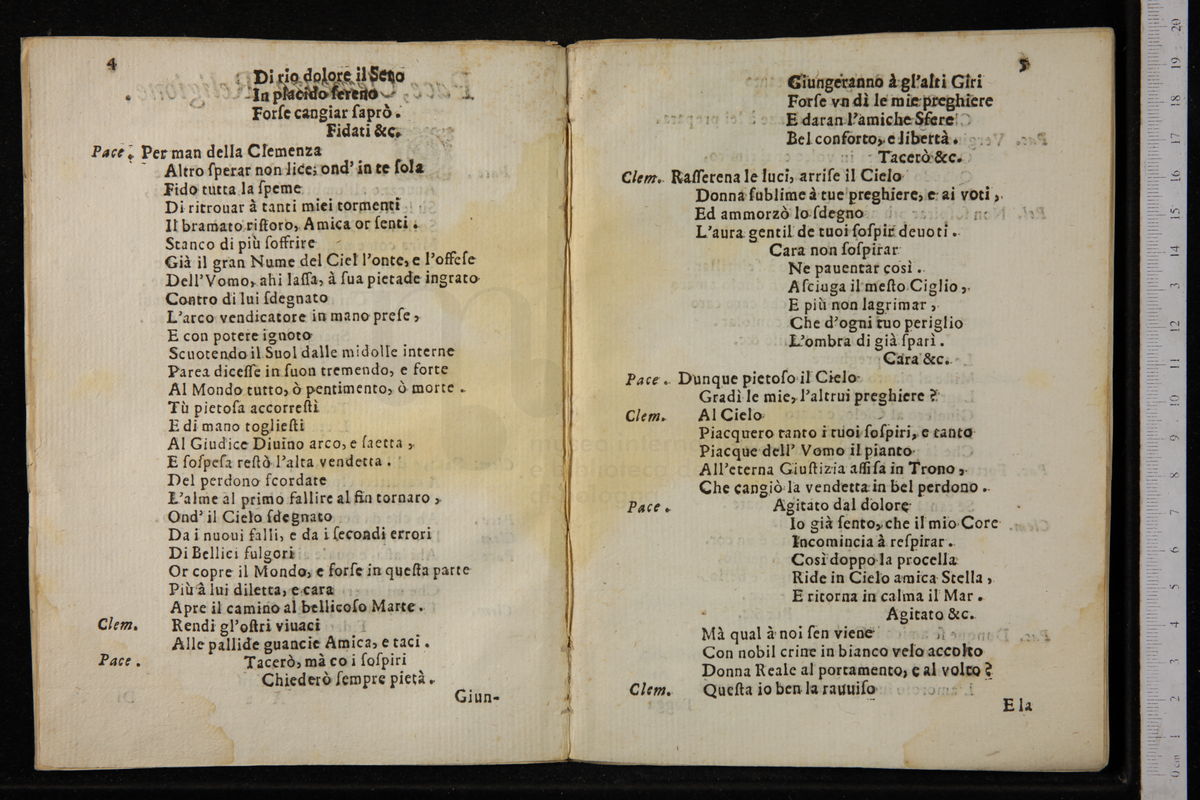 4
Di rio dolore il Seno
In placido sereno
Forſe cangiar ſaprò.
Fidati &c.
Pace. Per man della Clemenza
Altro ſperar non lice; ond' in te ſola
Fido tutta la ſpeme
Di ritrouar à tanti miei tormenti
Il bramato riſtoro, Amica or ſenti.
Stanco di più ſoffrire
Già il gran Nume del Ciel l'onte, e l'offeſe
Dell'Vomo, ahi laſſa, à ſua pietade ingrato
Contro di lui ſdegnato
L'arco vendicatore in mano preſe,
E con potere ignoto
Scuotendo il Suol dalle midolle interne
Parea diceſſe in ſuon tremendo, e forte
Al Mondo tutto, ò pentimento, ò morte.
Tù pietoſa accorreſti
E di mano toglieſti
Al Giudice Diuino arco, e ſaetta,
E ſoſpeſa reſtò l'alta vendetta.
Del perdono ſcordate
L'alme al primo fallire al fin tornaro,
Ond' il Cielo ſdegnato
Da i nuoui falli, e da i ſecondi errori
Di Bellici fulgori
Or copre il Mondo, e forſe in queſta parte
Più à lui diletta, e cara
Apre il camino al bellicoſo Marte.
Clem. Rendi gl'oſtri viuaci
Alle pallide guancie Amica, e taci.
Pace. Tacerò, mà co i ſoſpiri
Chiederò ſempre pietà.
Giun-
5
Giungeranno à gl'alti Giri
Forſe vn dì le mie preghiere
E daran l'amiche Sfere
Bel conforto, e libertà.
Tacerò &c.
Clem. Raſſerena le luci, arriſe il Cielo
Donna ſublime à tue preghiere, e ai voti,
Ed ammorzò lo ſdegno
L'aura gentil de tuoi ſoſpir deuoti.
Cara non ſoſpirar
Ne pauentar così.
Aſciuga il meſto Ciglio,
E più non lagrimar,
Che d'ogni tuo periglio
L'ombra di già ſparì.
Cara &c.
Pace. Dunque pietoſo il Cielo
Gradì le mie, l'altrui preghiere?
Clem. Al Cielo
Piacquero tanto i tuoi ſoſpiri, e tanto
Piacque dell' Vomo il pianto
All'eterna Giuſtizia aſſiſa in Trono,
Che cangiò la vendetta in bel perdono.
Pace. Agitato dal dolore
Io già ſento, che il mio Core
Incomincia à reſpirar.
Così doppo la procella
Ride in Cielo amica Stella,
E ritorna in calma il Mar.
Agitato &c.
Mà qual à noi ſen viene
Con nobil crine in bianco velo accolto
Donna Reale al portamento, e al volto?
Clem. Queſta io ben la rauuiſo
E la